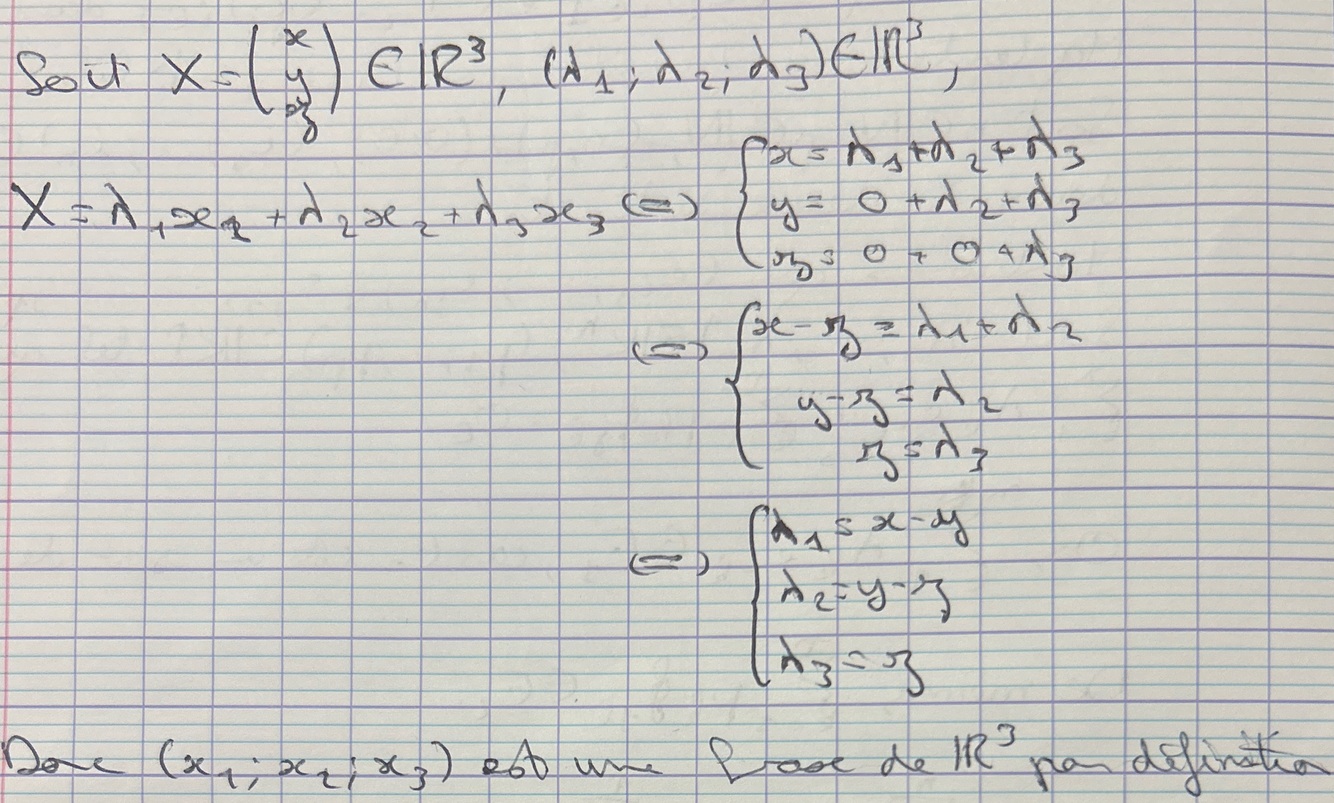 Soit X = (x y z) ∈ ℝ³, (λ₁; λ₂; λ₃) ∈ ℝ³,
X = λ₁x₁ + λ₂x₂ + λ₃x₃ (=) { x = λ₁ + λ₂ + λ₃
y = 0 + λ₂ + λ₃
z = 0 + 0 + λ₃
(=) { x - z = λ₁ + λ₂
y - z = λ₂
z = λ₃
(=) { λ₁ = x - y
λ₂ = y - z
λ₃ = z
Donc (x₁; x₂; x₃) est une base de ℝ³ par définition